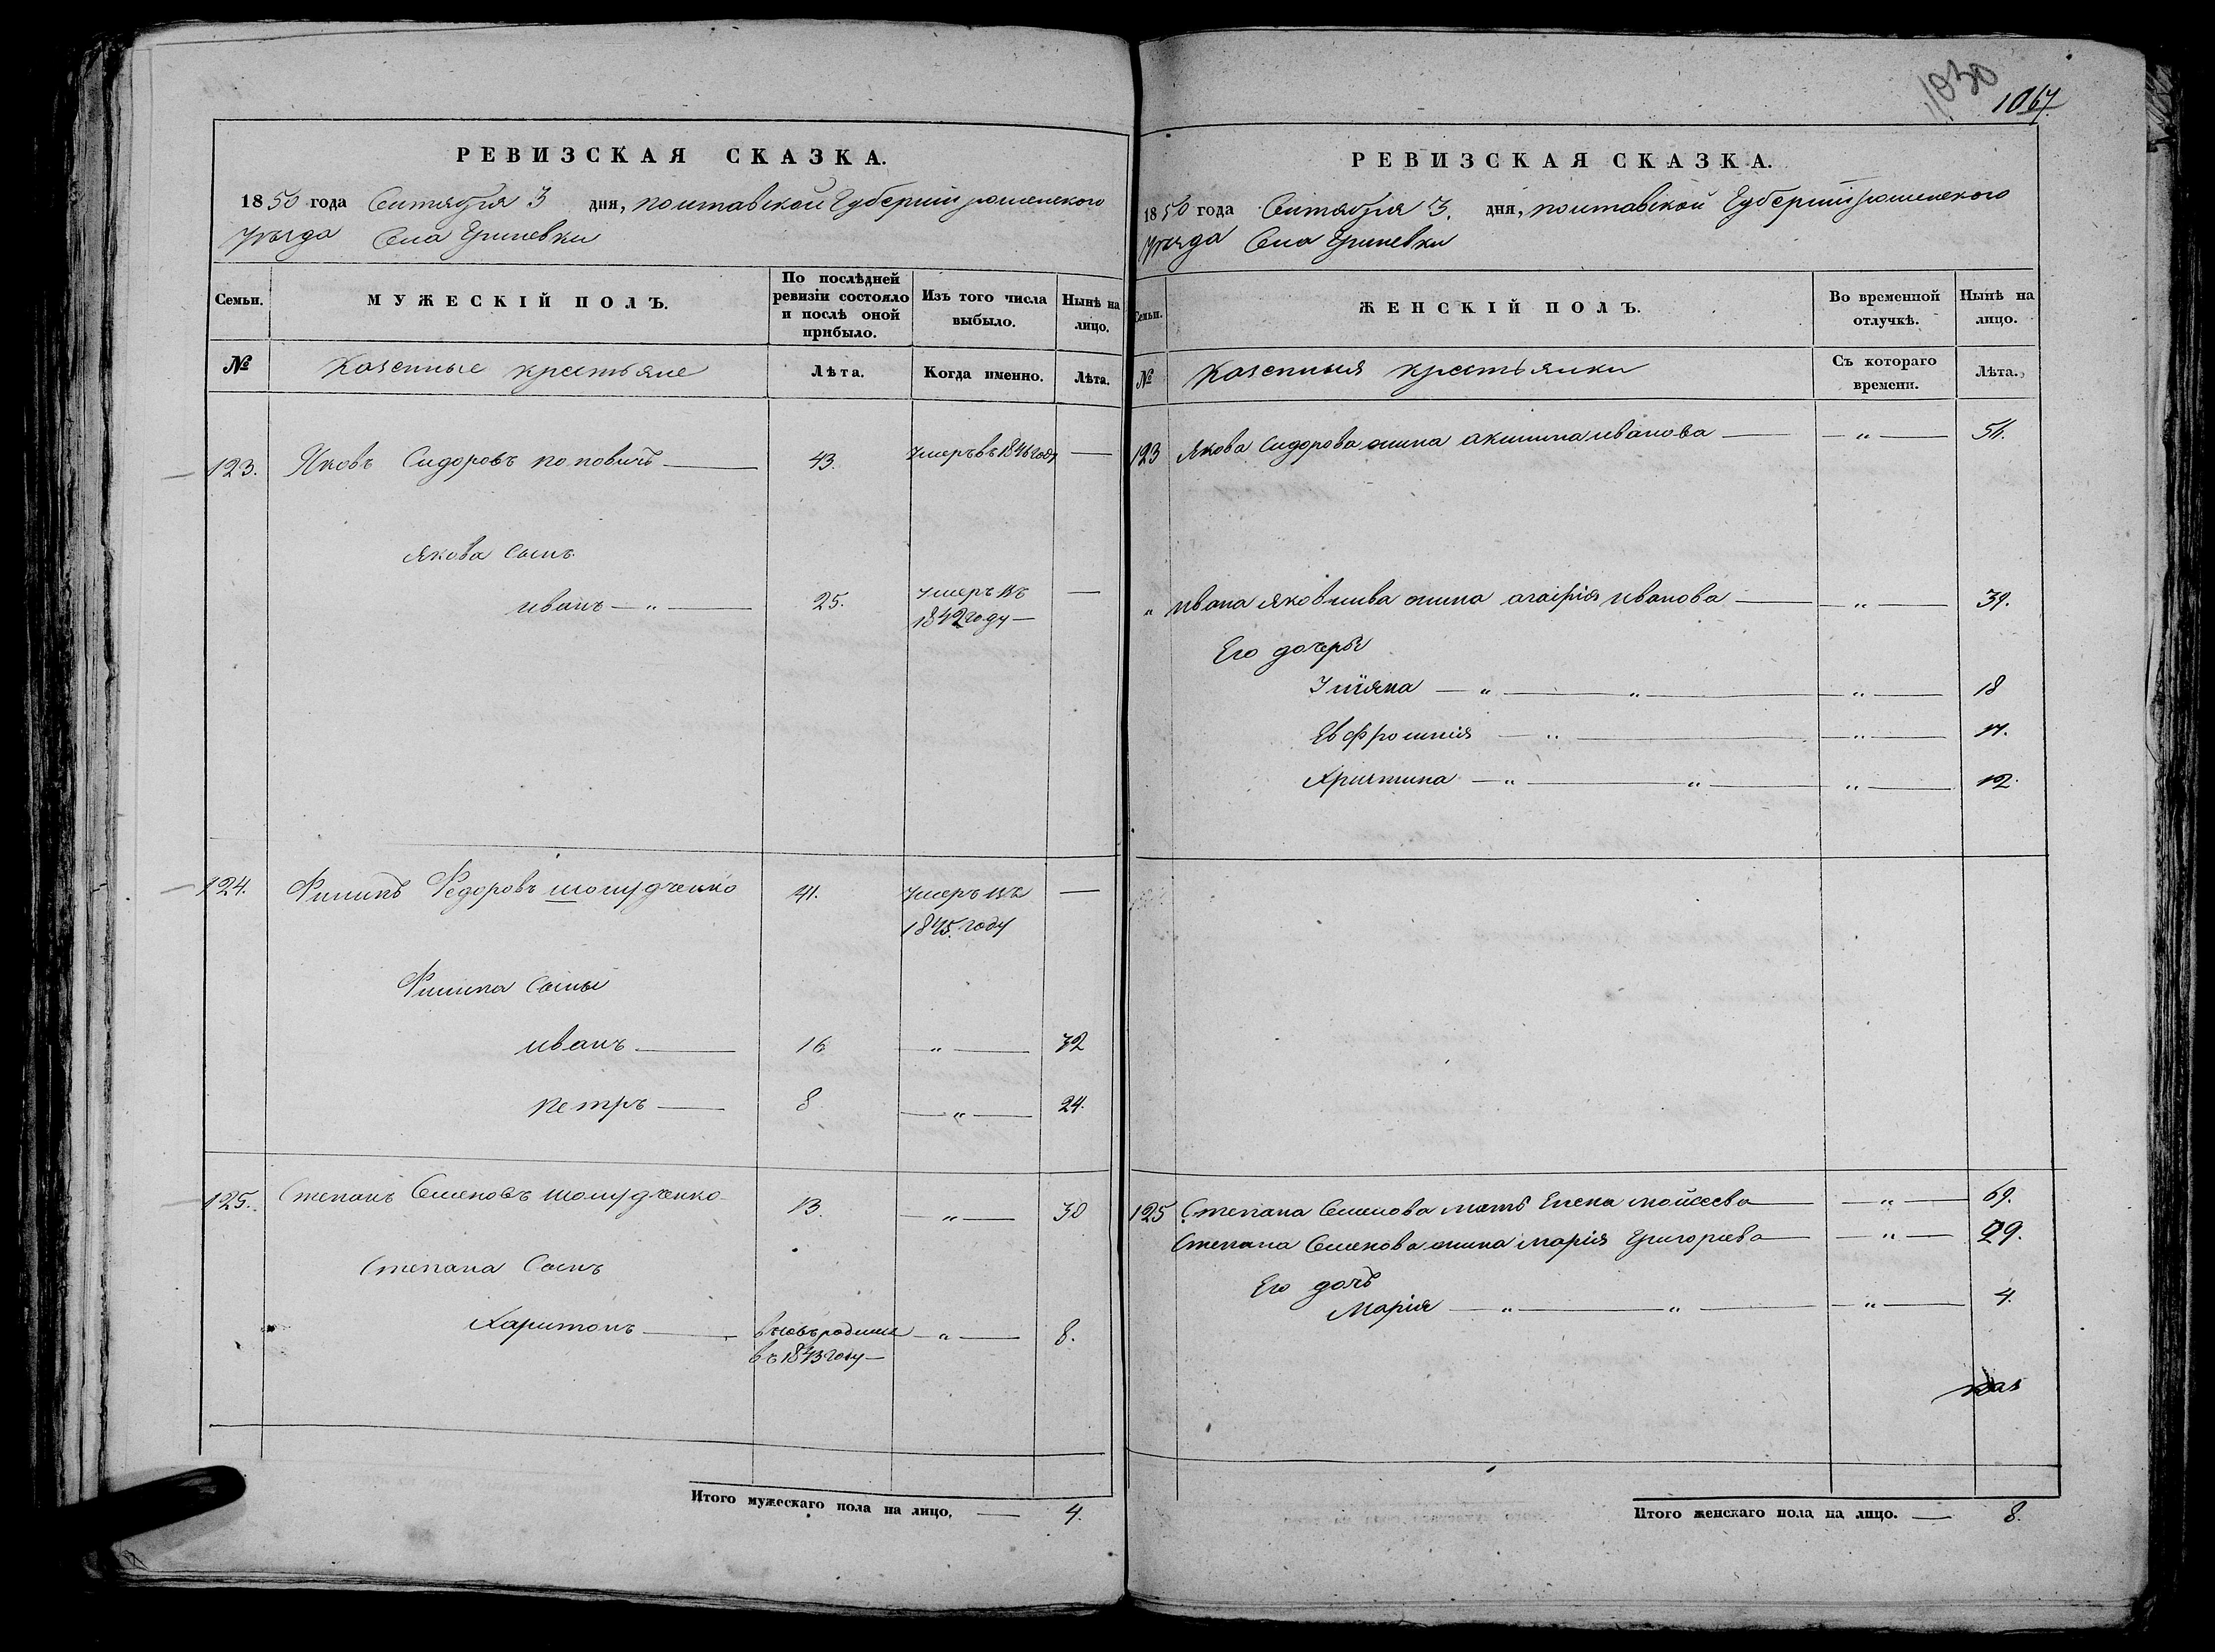 РЕВИЗСКАЯ СКАЗКА.
1850 года Сентября 3 дня, полтавской Губернии роменского
уѣзда Села Гриневки
Семьи.
МУЖЕСКІЙ ПОЛЪ.
По послѣдней ревизіи состояло и послѣ оной прибыло.
Изъ того числа выбыло.
Нынѣ на лицо.
№ Казенные крестьяне Лѣта. Когда именно. Лѣта.
123. Яковъ Сидоровъ поповичъ — 43. умеръ въ 1846 году —
Якова Сынъ
иванъ — „ — 25. умеръ въ —
1842 году —
124. Филипъ Федоровъ шолудченко 41. умеръ въ —
1845. году
Филипа Сыны
иванъ — 16 „ — 32
петръ — 8 — „ — 24.
125. Степанъ Семеновъ шолудченко 13. — „ — 30
Степана Сынъ
Харитонъ — вновь родился — „ — 8.
въ 1843 году —
Итого мужескаго пола на лицо. — 4.
1030
1067.
РЕВИЗСКАЯ СКАЗКА.
1850 года Сентября 3. дня, полтавской Губернии роменского
уѣзда Села Гриневки
Семьи.
ЖЕНСКІЙ ПОЛЪ.
Во временной отлучкѣ.
Нынѣ на лицо.
№ Казенныя крестьянки Съ котораго времени. Лѣта.
123 Якова Сидорова жина акилина иванова — — „ —
„ ивана яковлива жина агафія иванова — — „ — 39.
Его дочери
Уліяна — „ — „ — — „ — 18
Евфросинія — „ — — „ —
Христина — „ — „ — „ — 12.
125 Степана Семенова мать Елена мойсеева — — „ — 69.
Степана Семенова жина марія Григориева — — „ — 29.
Его дочь
Марія — „ — „ — — „ — 4.
Итого женскаго пола на лицо. — 8.